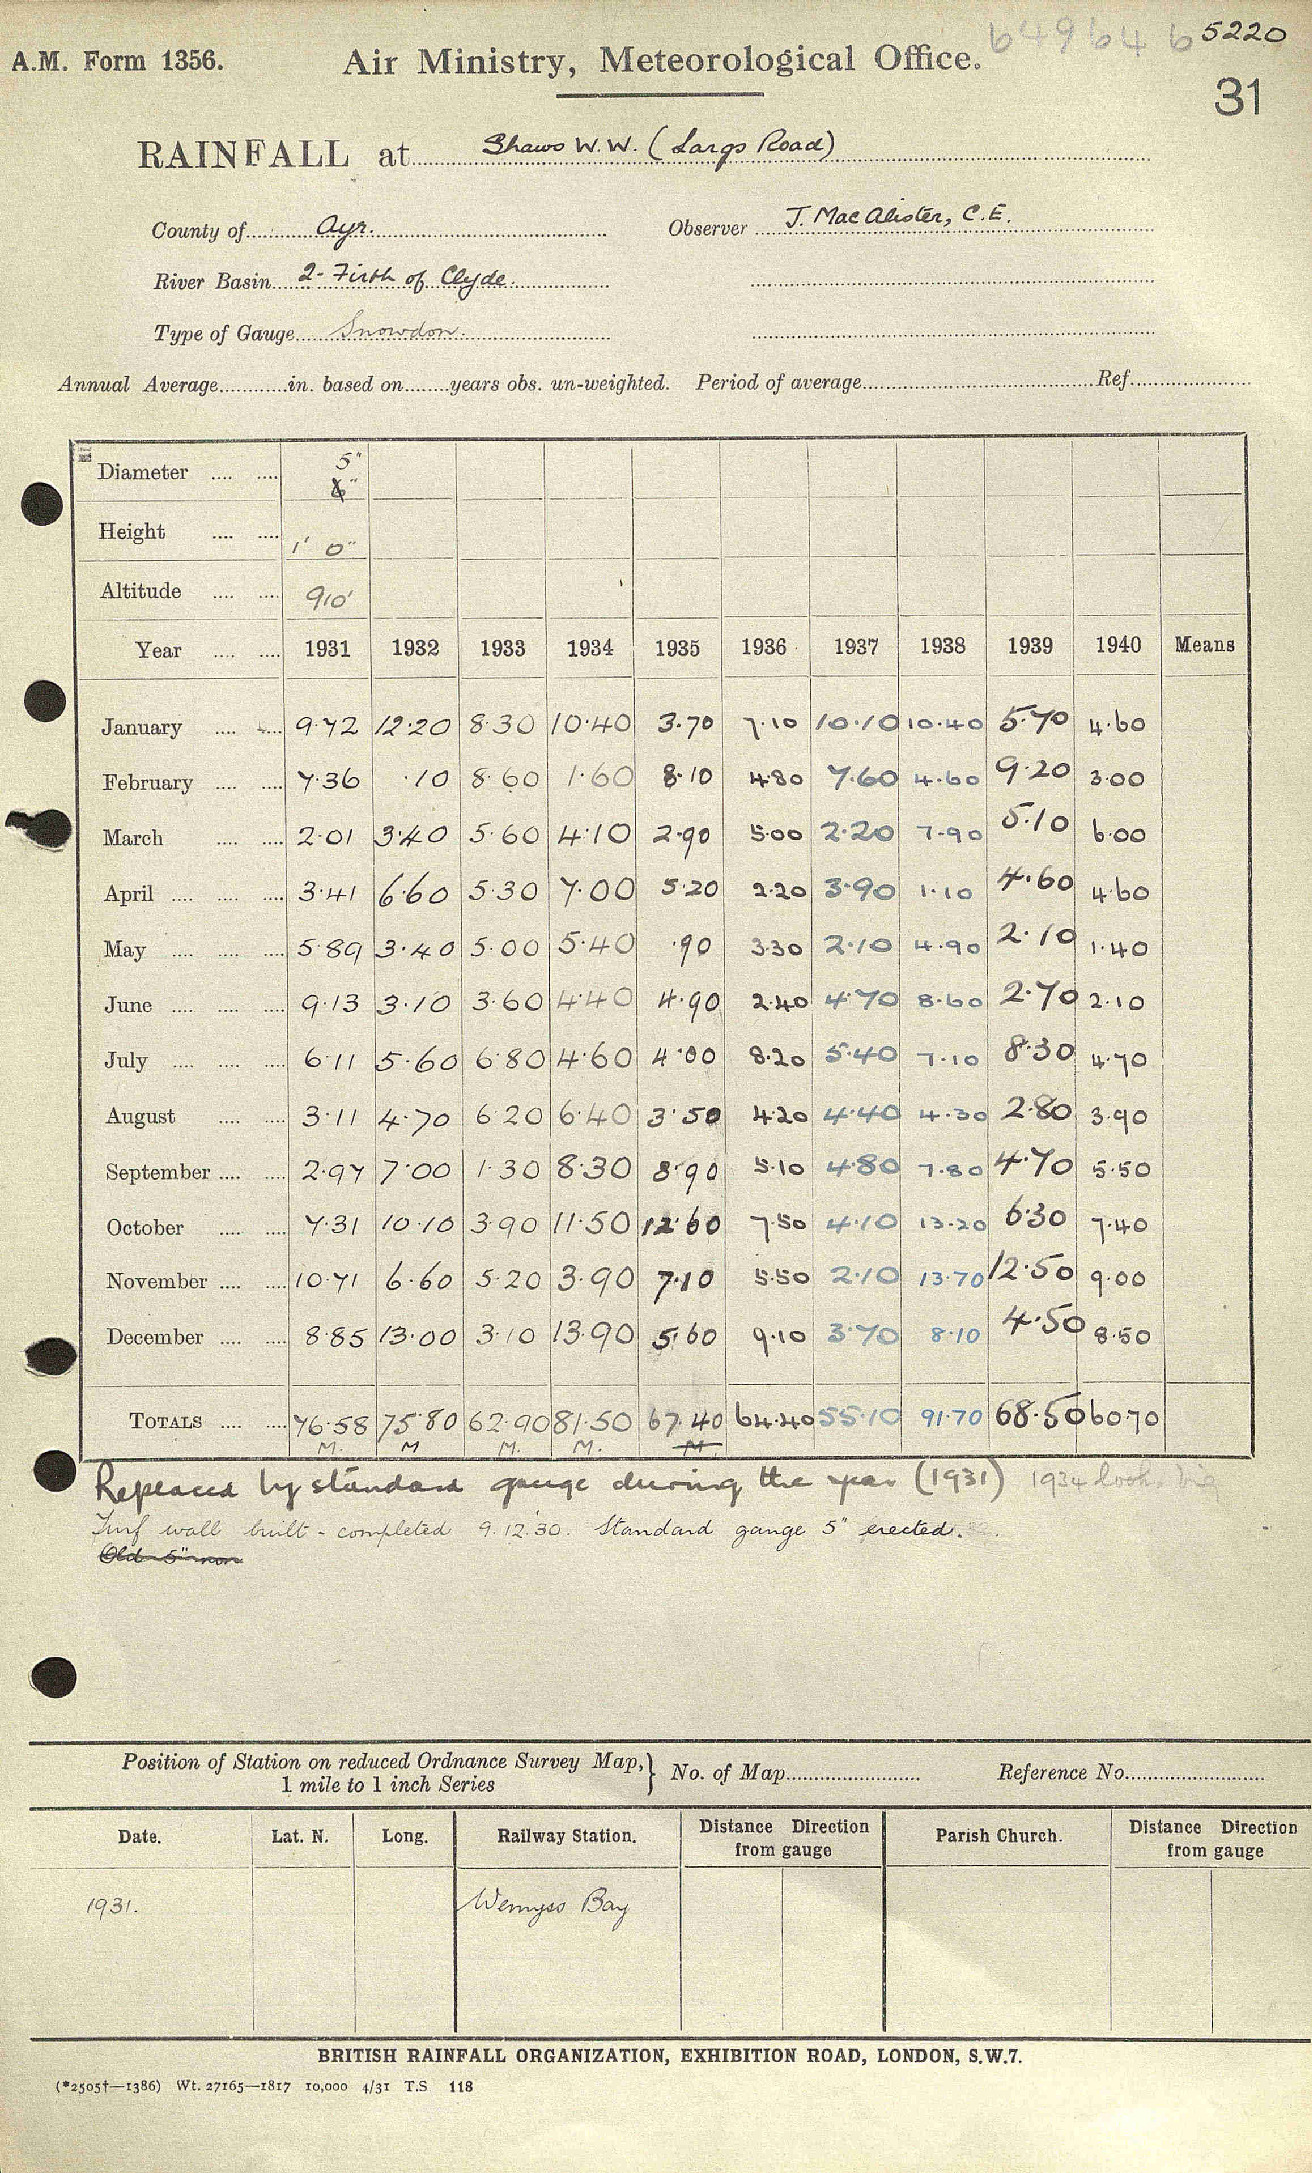 649646 5220
A.M. Form 1356. Air Ministry, Meteorological Office.
31
RAINFALL at Shaws W.W. (Largs Road)
County of Ayr. Observer J. MacAlister, C.E.
River Basin 2 - Firth of Clyde.
Type of Gauge Snowdon.
Annual Average in. based on years obs. un-weighted. Period of average Ref.
Diameter 5"
6"
Height 1' 0"
Altitude 910'
Year 1931 1932 1933 1934 1935 1936 1937 1938 1939 1940 Means
January 9.72 12.20 8.30 10.40 3.70 7.10 10.10 10.40 5.70 4.60
February 7.36 .10 8.60 1.60 8.10 4.80 7.60 4.60 9.20 3.00
March 2.01 3.40 5.60 4.10 2.90 5.00 2.20 7.90 5.10 6.00
April 3.41 6.60 5.30 7.00 5.20 2.20 3.90 1.10 4.60 4.60
May 5.89 3.40 5.00 5.40 .90 3.30 2.10 4.90 2.10 1.40
June 9.13 3.10 3.60 4.40 4.90 2.40 4.70 8.60 2.70 2.10
July 6.11 5.60 6.80 4.60 4.00 8.20 5.40 7.10 8.30 4.70
August 3.11 4.70 6.20 6.40 3.50 4.20 4.40 4.30 2.80 3.90
September 2.97 7.00 1.30 8.30 8.90 5.10 4.80 7.80 4.70 5.50
October 7.31 10.10 3.90 11.50 12.60 7.50 4.10 13.20 6.30 7.40
November 10.71 6.60 5.20 3.90 7.10 5.50 2.10 13.70 12.50 9.00
December 8.85 13.00 3.10 13.90 5.60 9.10 3.70 8.10 4.50 8.50
TOTALS 76.58 75.80 62.90 81.50 67.40 64.40 55.10 91.70 68.50 60.70
M. M M. M. M.
Replaced by standard gauge during the year (1931) 1934 looks big
Turf wall built - completed 9.12.30. Standard gauge 5" erected.
Old 5"
Position of Station on reduced Ordnance Survey Map, } No. of Map Reference No.
1 mile to 1 inch Series
Date. Lat. N. Long. Railway Station. Distance Direction from gauge Parish Church. Distance Direction from gauge
1931. Wemyss Bay
BRITISH RAINFALL ORGANIZATION, EXHIBITION ROAD, LONDON, S.W.7.
(*2505†—1386) Wt. 27165—1817 10,000 4/31 T.S 118